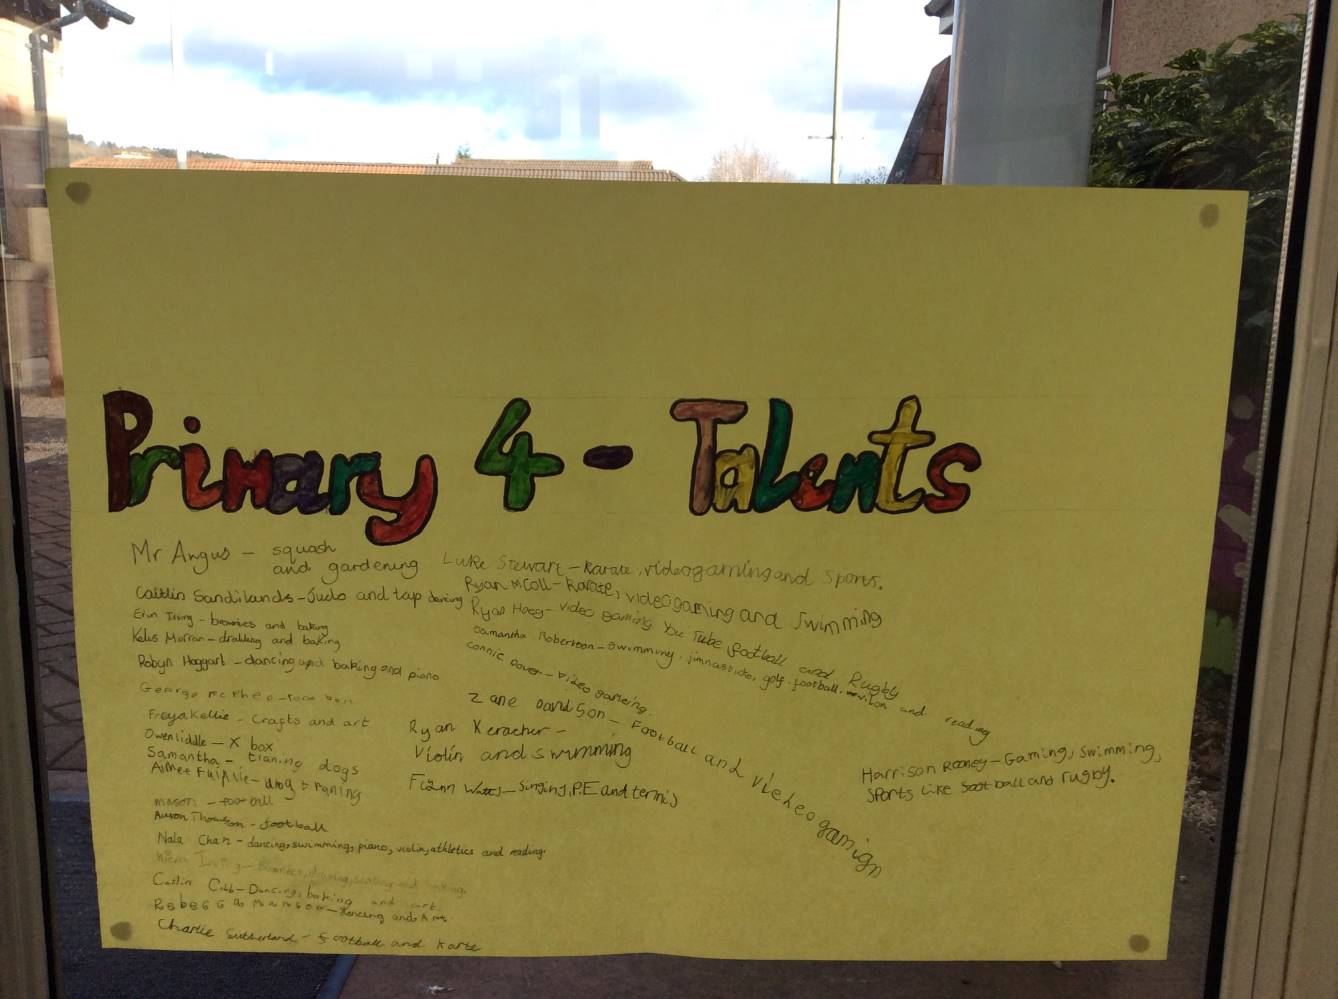 Primary 4 - Talents
Mr Angus - squash
and gardening
Caitlin Sandilands - Judo and tap dancing
Erin Irving - brownies and baking
and baking
Robyn Haggart - dancing and baking and piano
George
Freya Kellie - Crafts and art
Owen liddle - X box
Samantha - traning dogs
Aimee Fairlie - dog traning
mason - football
Thomson - football
Nala - dancing, swimming, piano, violin, athletics and reading.
Irving - Brownies, and baking
Caitlin Cobb - Dancing, baking and art.
and Art
Charlie Sutherland - football and Karte
Luke Stewart - Karate, videogaming and Sports.
Ryan McColl - Karate, video gaming and Swimming
Ryan Hogg - video gaming You Tube football and Rugby
Samantha Robertson - Swimming, golf, football, and reading
Connie - video gameing.
Zane Davidson - Football and vieheogamign
Ryan Keracher -
Violin and swimming
Singing, P.E and tennis
Harrison Rooney - Gaming, Swimming,
Sports like football and rugby.